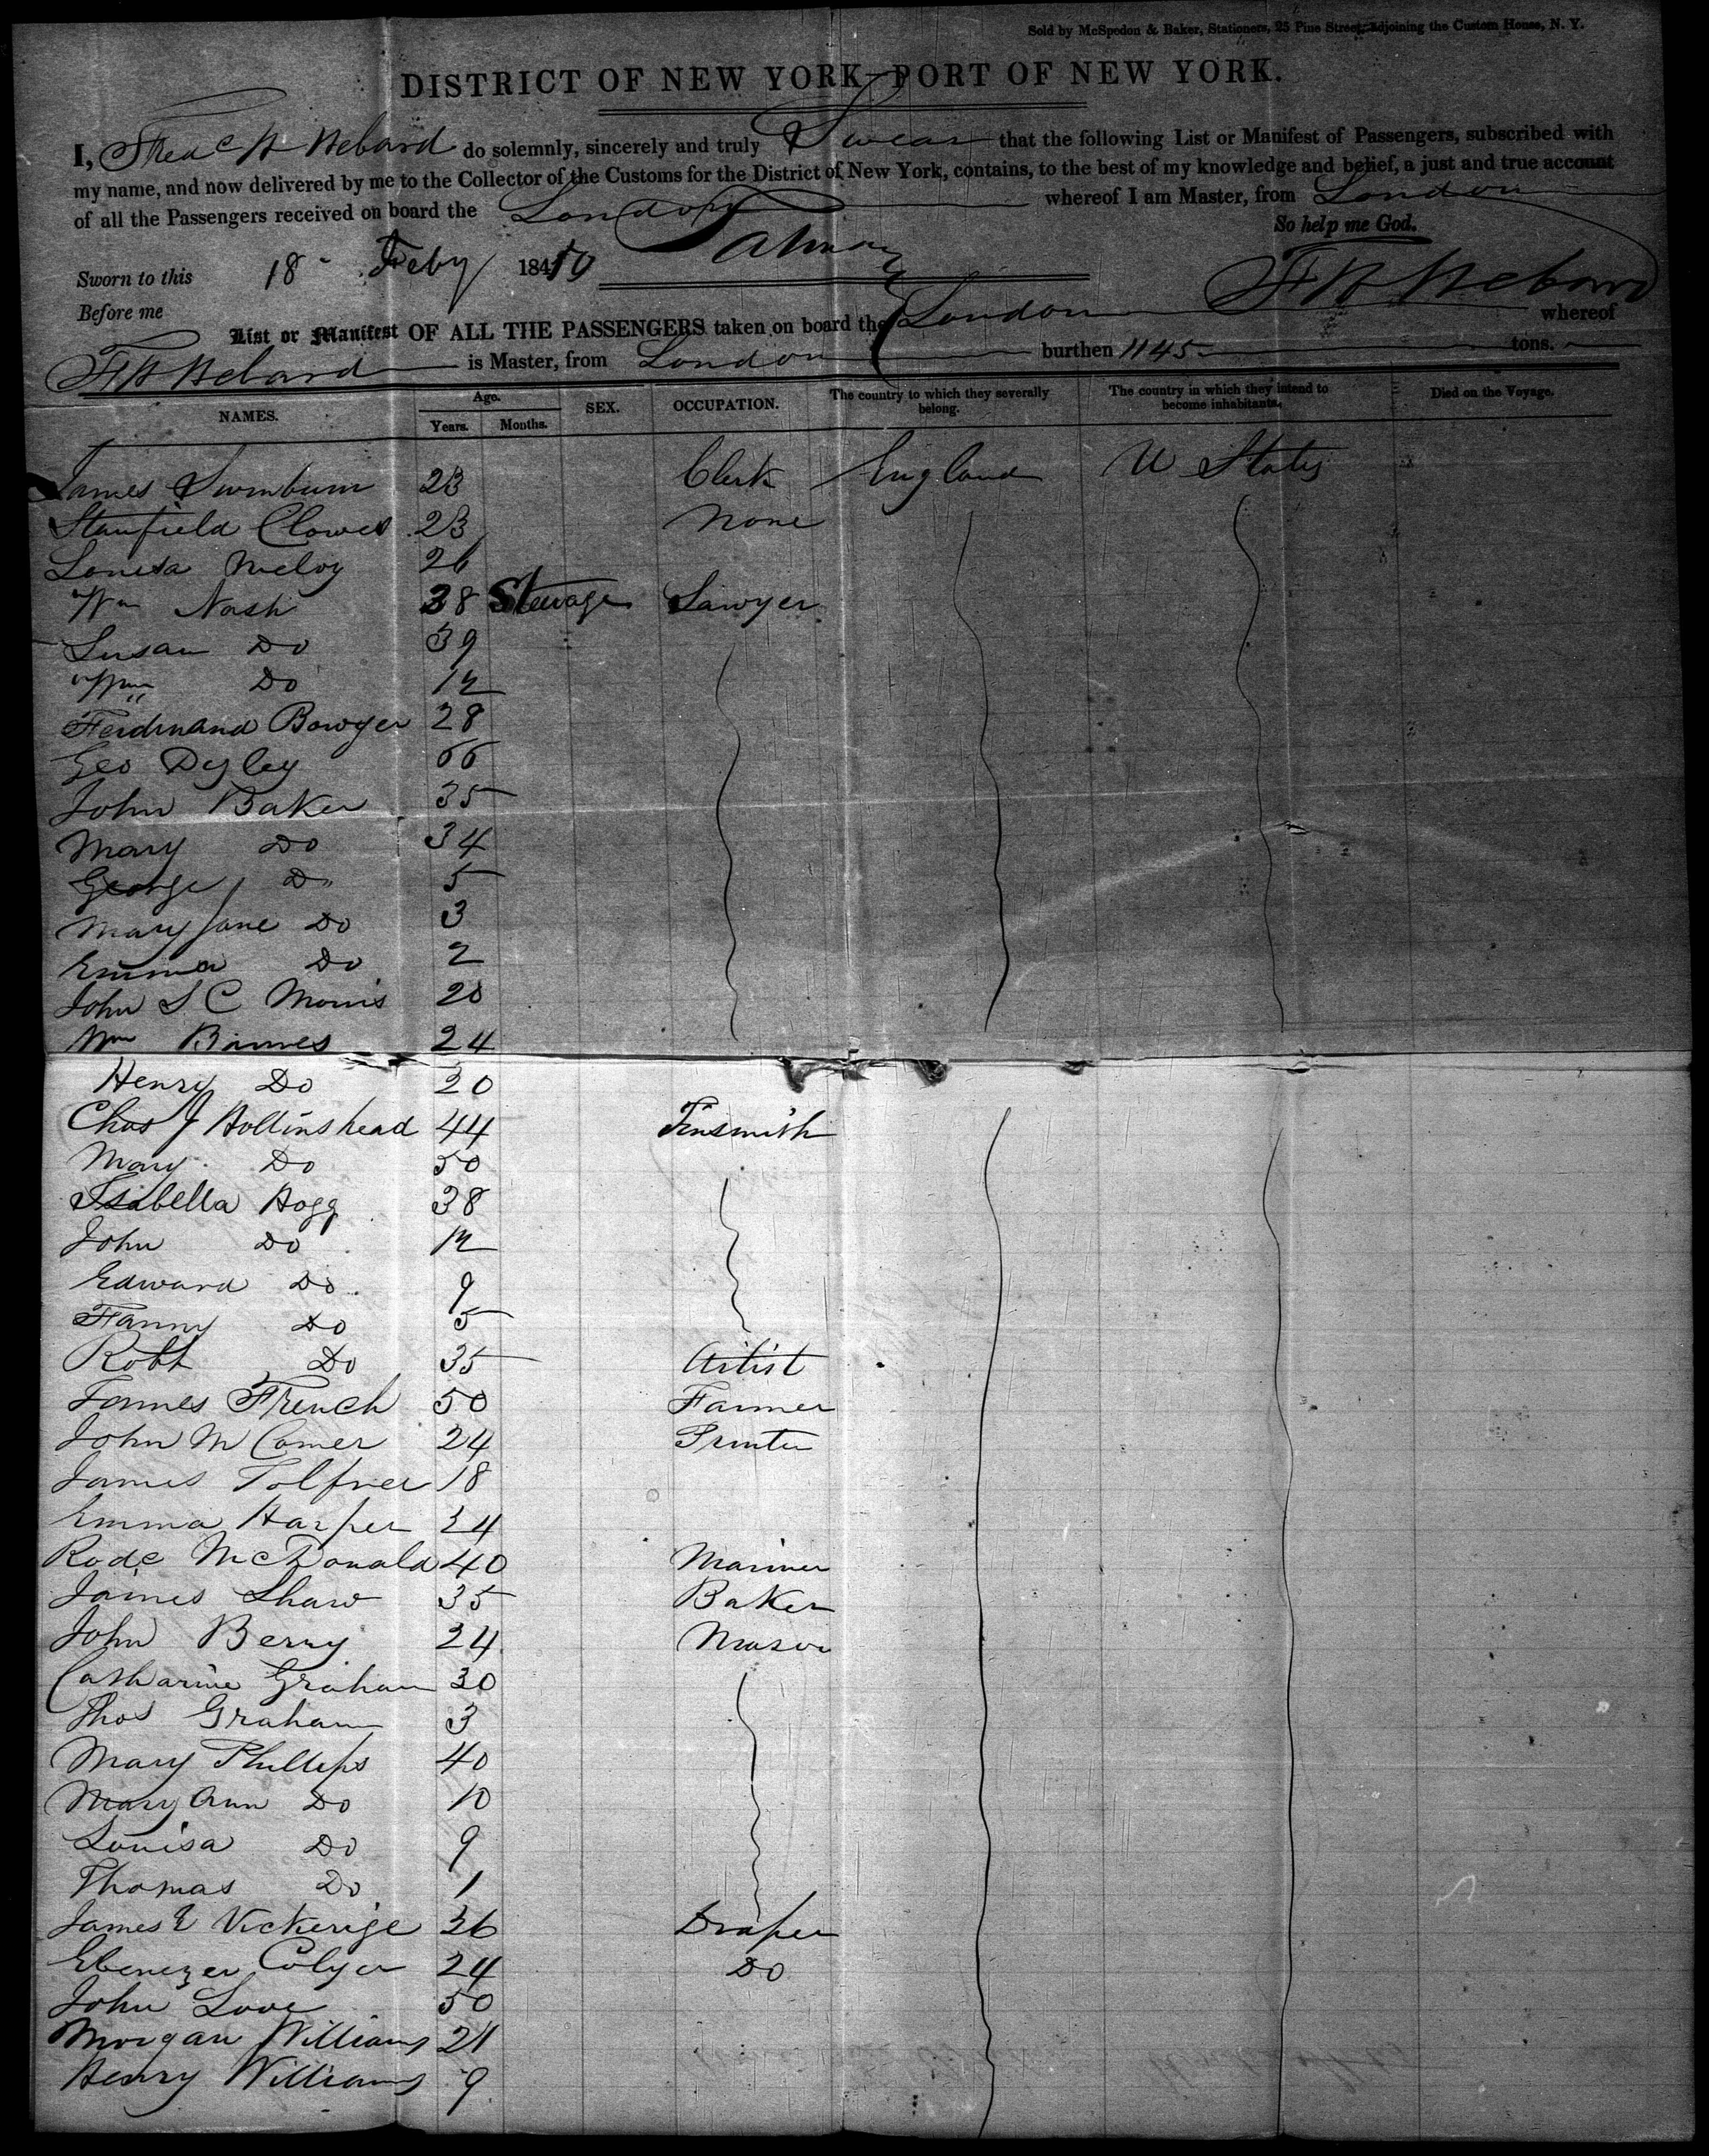 Sold by McSpedon & Baker, Stationers, 25 Pine Street, adjoining the Custom House, N. Y.
DISTRICT OF NEW YORK—PORT OF NEW YORK.
I, Fredc H Hebard do solemnly, sincerely and truly Swear that the following List or Manifest of Passengers, subscribed with
my name, and now delivered by me to the Collector of the Customs for the District of New York, contains, to the best of my knowledge and belief, a just and true account
of all the Passengers received on board the London whereof I am Master, from London
So help me God.
Sworn to this 18 Feby 1850
Before me F H Hebard
List or Manifest OF ALL THE PASSENGERS taken on board the London whereof
F H Hebard is Master, from London burthen 1145 tons.
NAMES. Age. Years. Months. SEX. OCCUPATION. The country to which they severally belong. The country in which they intend to become inhabitants. Died on the Voyage.
James Swinburn 23 Clerk England U States
Stanfield Clowes 23 None
Louisa 26
Wm Nash 38 Steerage Sawyer
Susan Do 39
Wm Do 12
Ferdinand Bowyer 28
Geo 66
John Baker 35
Mary Do 34
George Do 5
Mary Jane Do 3
Emma Do 2
John S C Morris 20
Wm Binnes 24
Henry Do 20
Chas J Hollinshead 44 Tinsmith
Mary Do 50
Isabella Hogg 38
John Do 12
Edward Do 9
Fanny Do 5
Robt Do 35 Artist
James French 50 Farmer
John M Comer 24 Printer
James Tolfree 18
Emma Harper 24
Rodc McDonald 40 Mariner
James Shaw 35 Baker
John Berry 24 Mason
Catharine Graham 30
Thos Graham 3
Mary Phillips 40
Mary Ann Do 10
Louisa Do 9
Thomas Do 1
James E Vickerige 36 Draper
Ebenezer Colyer 24 Do
John Love 50
Morgan Williams 21
Henry Williams 9